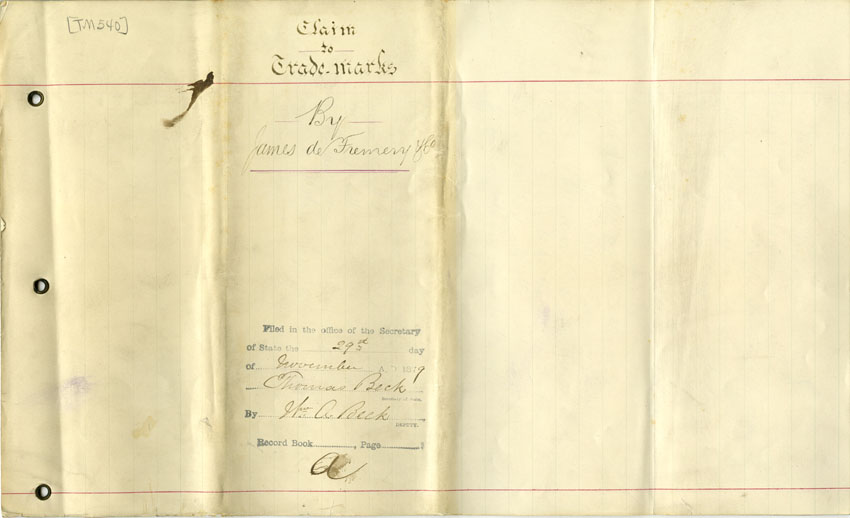 [TM540]
Claim
to
Trade-marks
By
James de Fremery & Co
Filed in the office of the Secretary
of State the 29th day
of November A.D 1879
Thomas Beck
Secretary of State.
By Wm A Beck
DEPUTY.
Record Book , Page